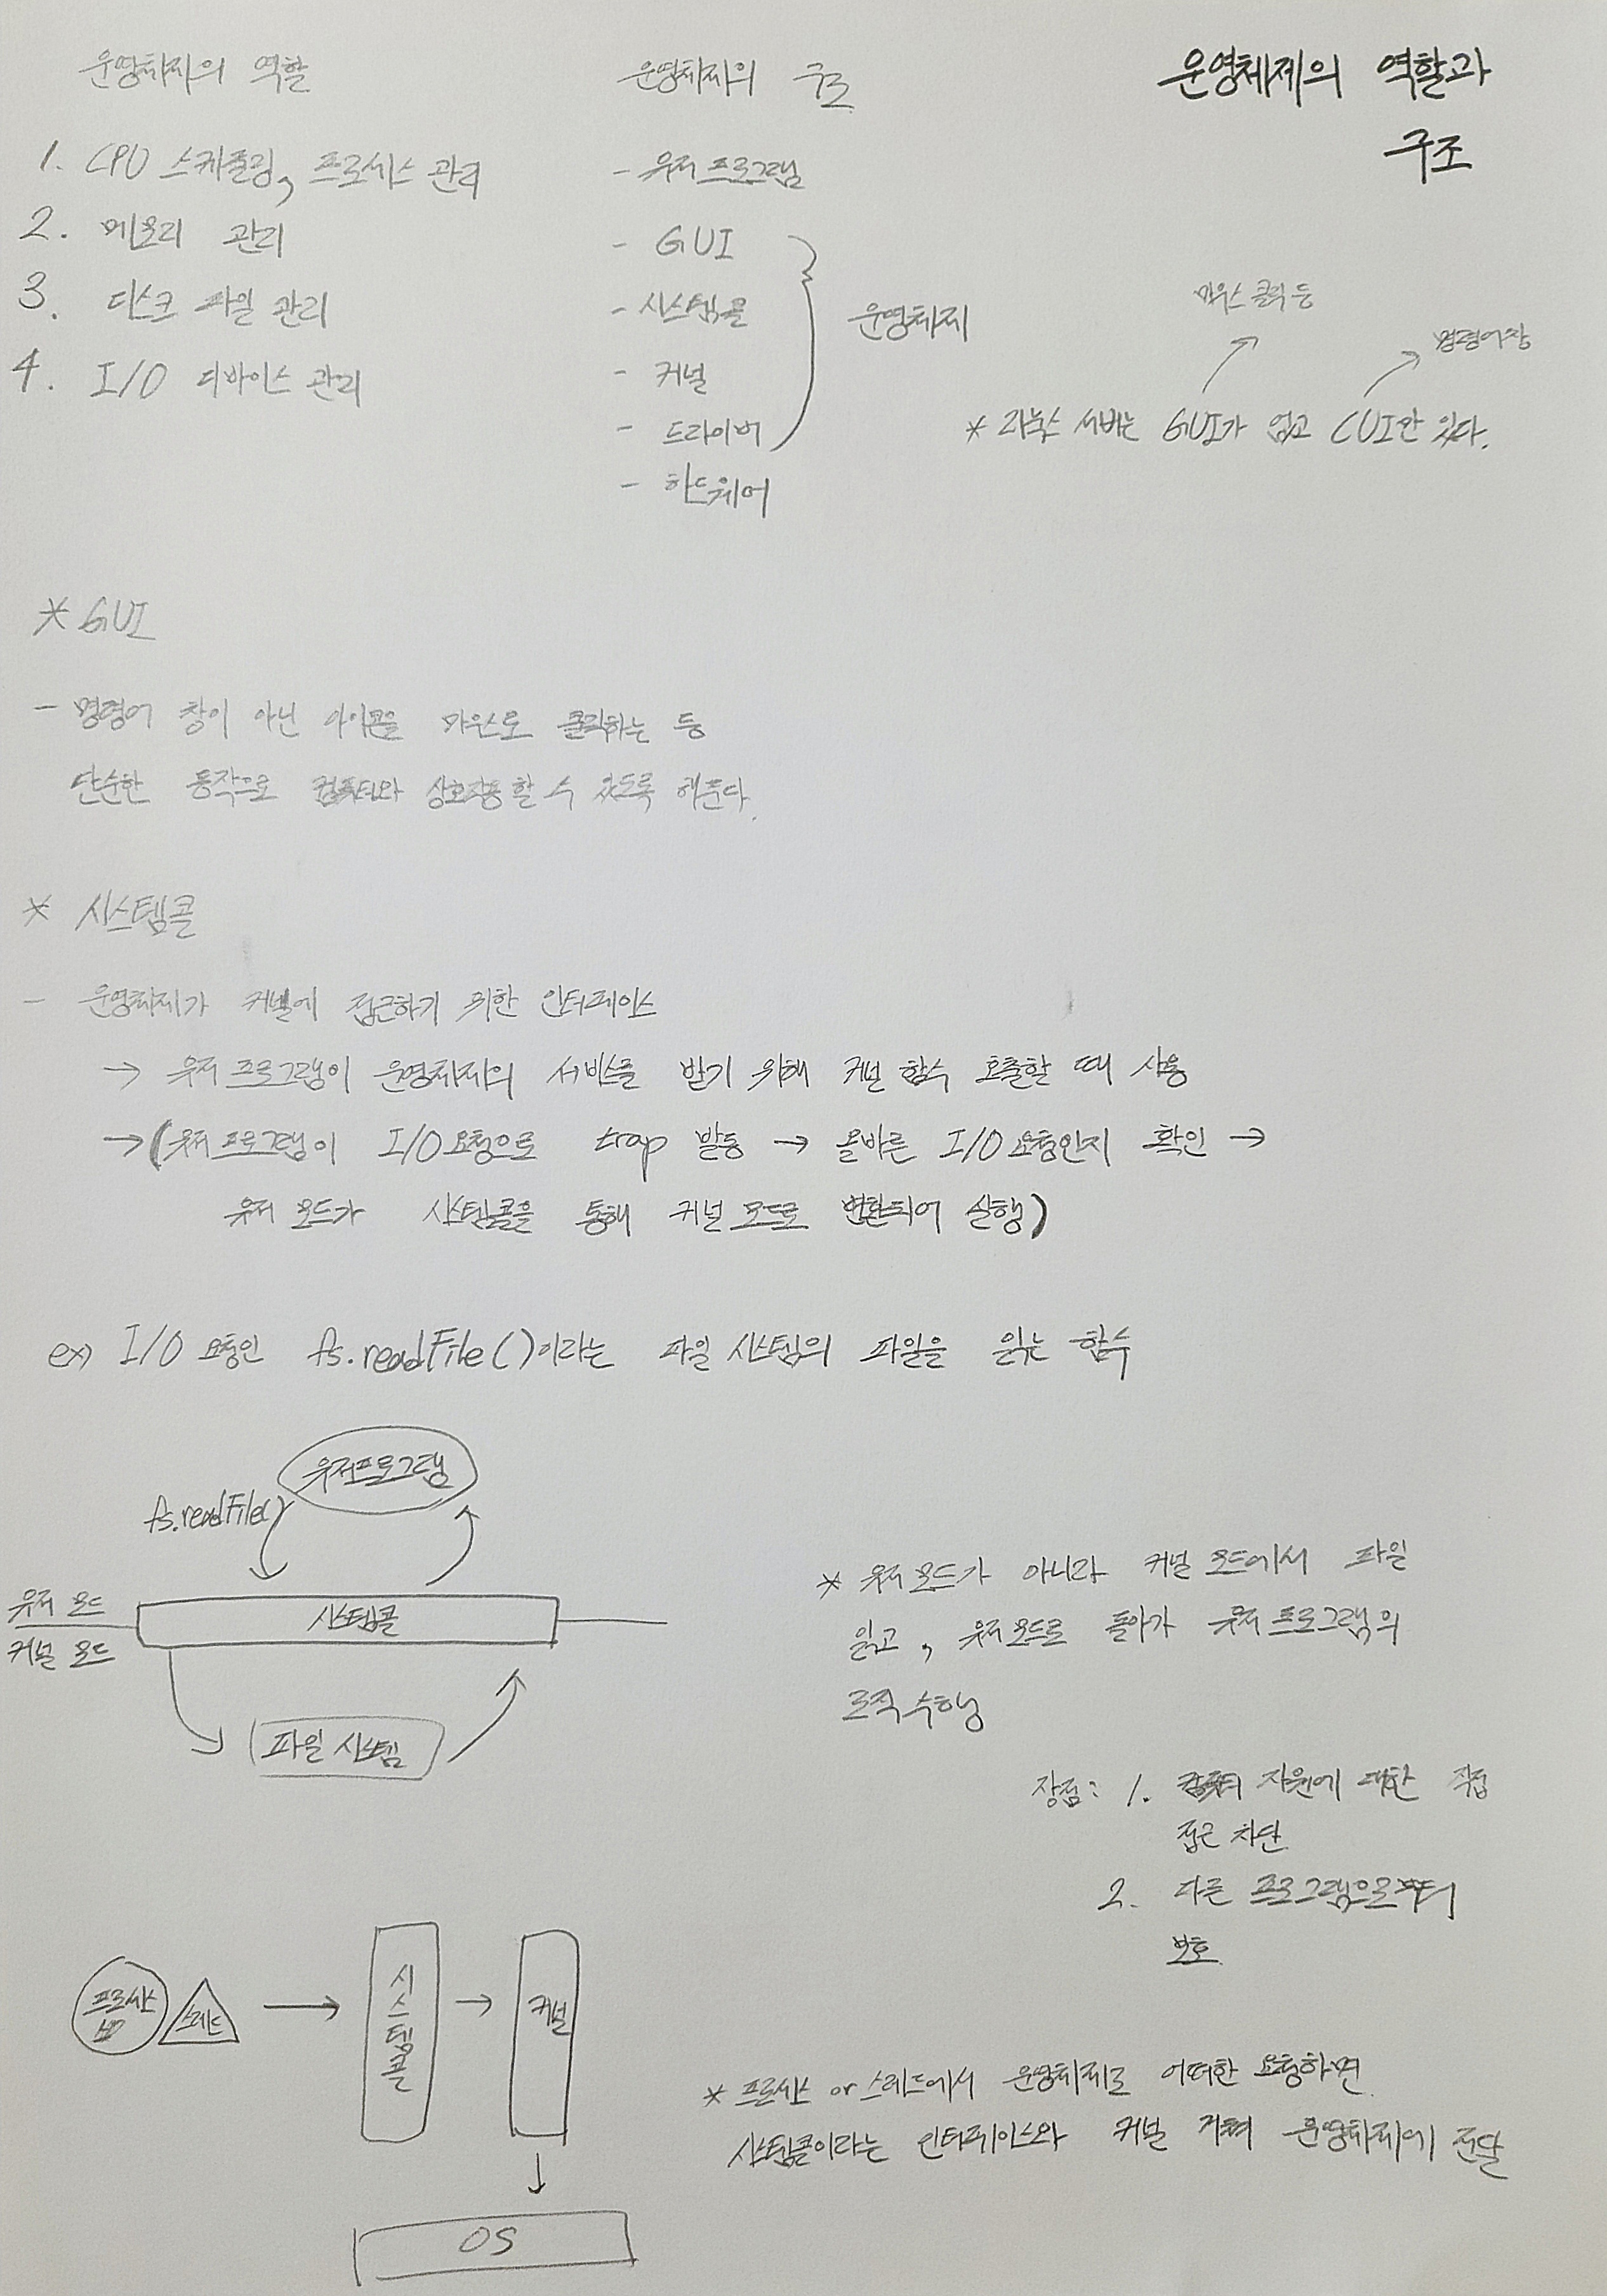 운영체제의 역할과
구조
운영체제의 역할
1. CPU 스케줄링, 프로세스 관리
2. 메모리 관리
3. 디스크 파일 관리
4. I/O 디바이스 관리
운영체제의 구조
- 유저 프로그램
- GUI
- 시스템콜
- 커널
- 드라이버
- 하드웨어
운영체제
마우스 클릭 등
명령어창
* 리눅스 서버는 GUI가 없고 CUI만 있다.
* GUI
- 명령어 창이 아닌 아이콘을 마우스로 클릭하는 등
단순한 동작으로 컴퓨터와 상호작용할 수 있도록 해준다.
* 시스템콜
- 운영체제가 커널에 접근하기 위한 인터페이스
→ 유저 프로그램이 운영체제의 서비스를 받기 위해 커널 함수 호출할 때 사용
→ (유저 프로그램이 I/O 요청으로 trap 발동 → 올바른 I/O 요청인지 확인 →
유저 모드가 시스템콜을 통해 커널 모드로 변환되어 실행)
ex) I/O 요청인 fs.readFile()이라는 파일 시스템의 파일을 읽는 함수
유저프로그램
fs.readFile()
유저 모드
시스템콜
커널 모드
파일 시스템
* 유저 모드가 아니라 커널 모드에서 파일
읽고, 유저 모드로 돌아가 유저 프로그램의
로직 수행
장점: 1. 컴퓨터 자원에 대한 직접
접근 차단
2. 다른 프로그램으로부터
보호
프로세스
스레드
시스템콜
커널
OS
* 프로세스 or 스레드에서 운영체제로 어떠한 요청하면
시스템콜이라는 인터페이스와 커널 거쳐 운영체제에 전달